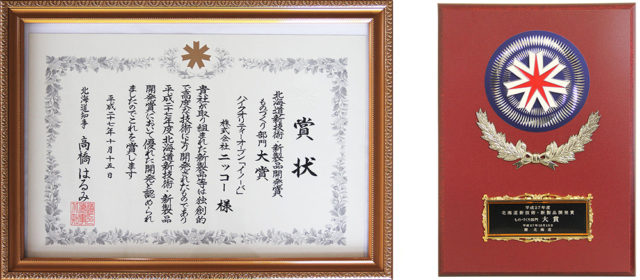 賞状
北海道新技術・新製品開発賞
ものづくり部門 大賞
ハイクオリティーオーブン「ノーバ」
株式会社 ニッコー 様
貴社が取り組まれた新製品等は独創的
で高度な技術により開発されたものであり
平成二十七年度北海道新技術・新製品
開発賞において優れた開発と認められ
ましたのでこれを賞します
平成二十七年十月十五日
北海道知事 高橋はるみ
平成27年度
北海道新技術・新製品開発賞
ものづくり部門 大賞
平成27年10月15日
北海道